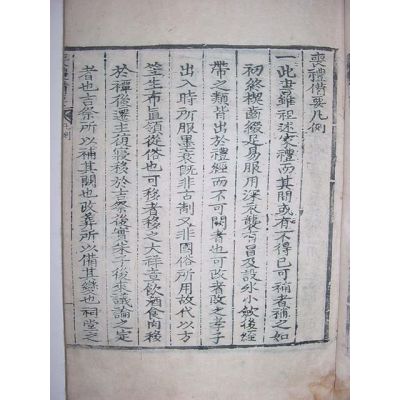 喪禮俻要凡例
一此書雖祖述家禮而其間或有不得已可補者補之如
初終楔齒綴足易服用深衣襲有冒及設氷小斂後絰
帶之類皆出於禮經而不可闕者也可改者改之孝子
出入時所服墨衰旣非古制又非國俗所用故代以方
笠生布直領從俗也可移者移之大祥章飲酒食肉移
於禫後遷主復寢移於吉祭後實朱子後來議論之定
者也吉祭所以補其闕也改葬所以備其變也祠堂之